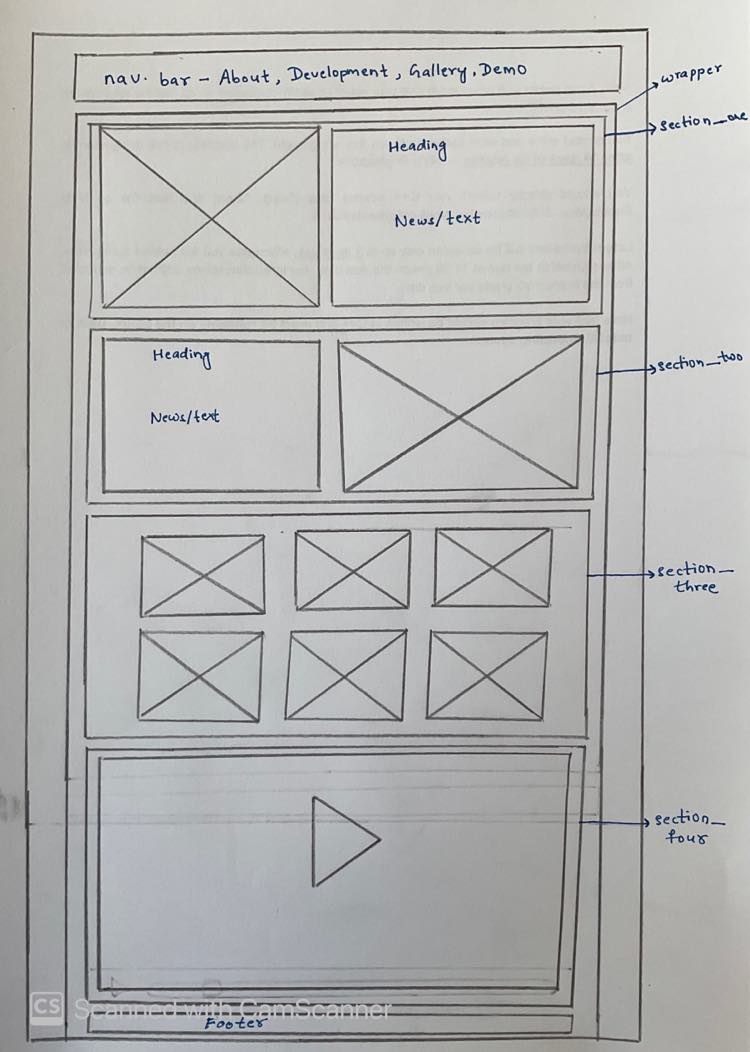 nav. bar - About, Development, Gallery, Demo
wrapper
section_one
Heading
News/text
Heading
section_two
News/text
section_
three
section_
four
CS Scanned with CamScanner
Footer